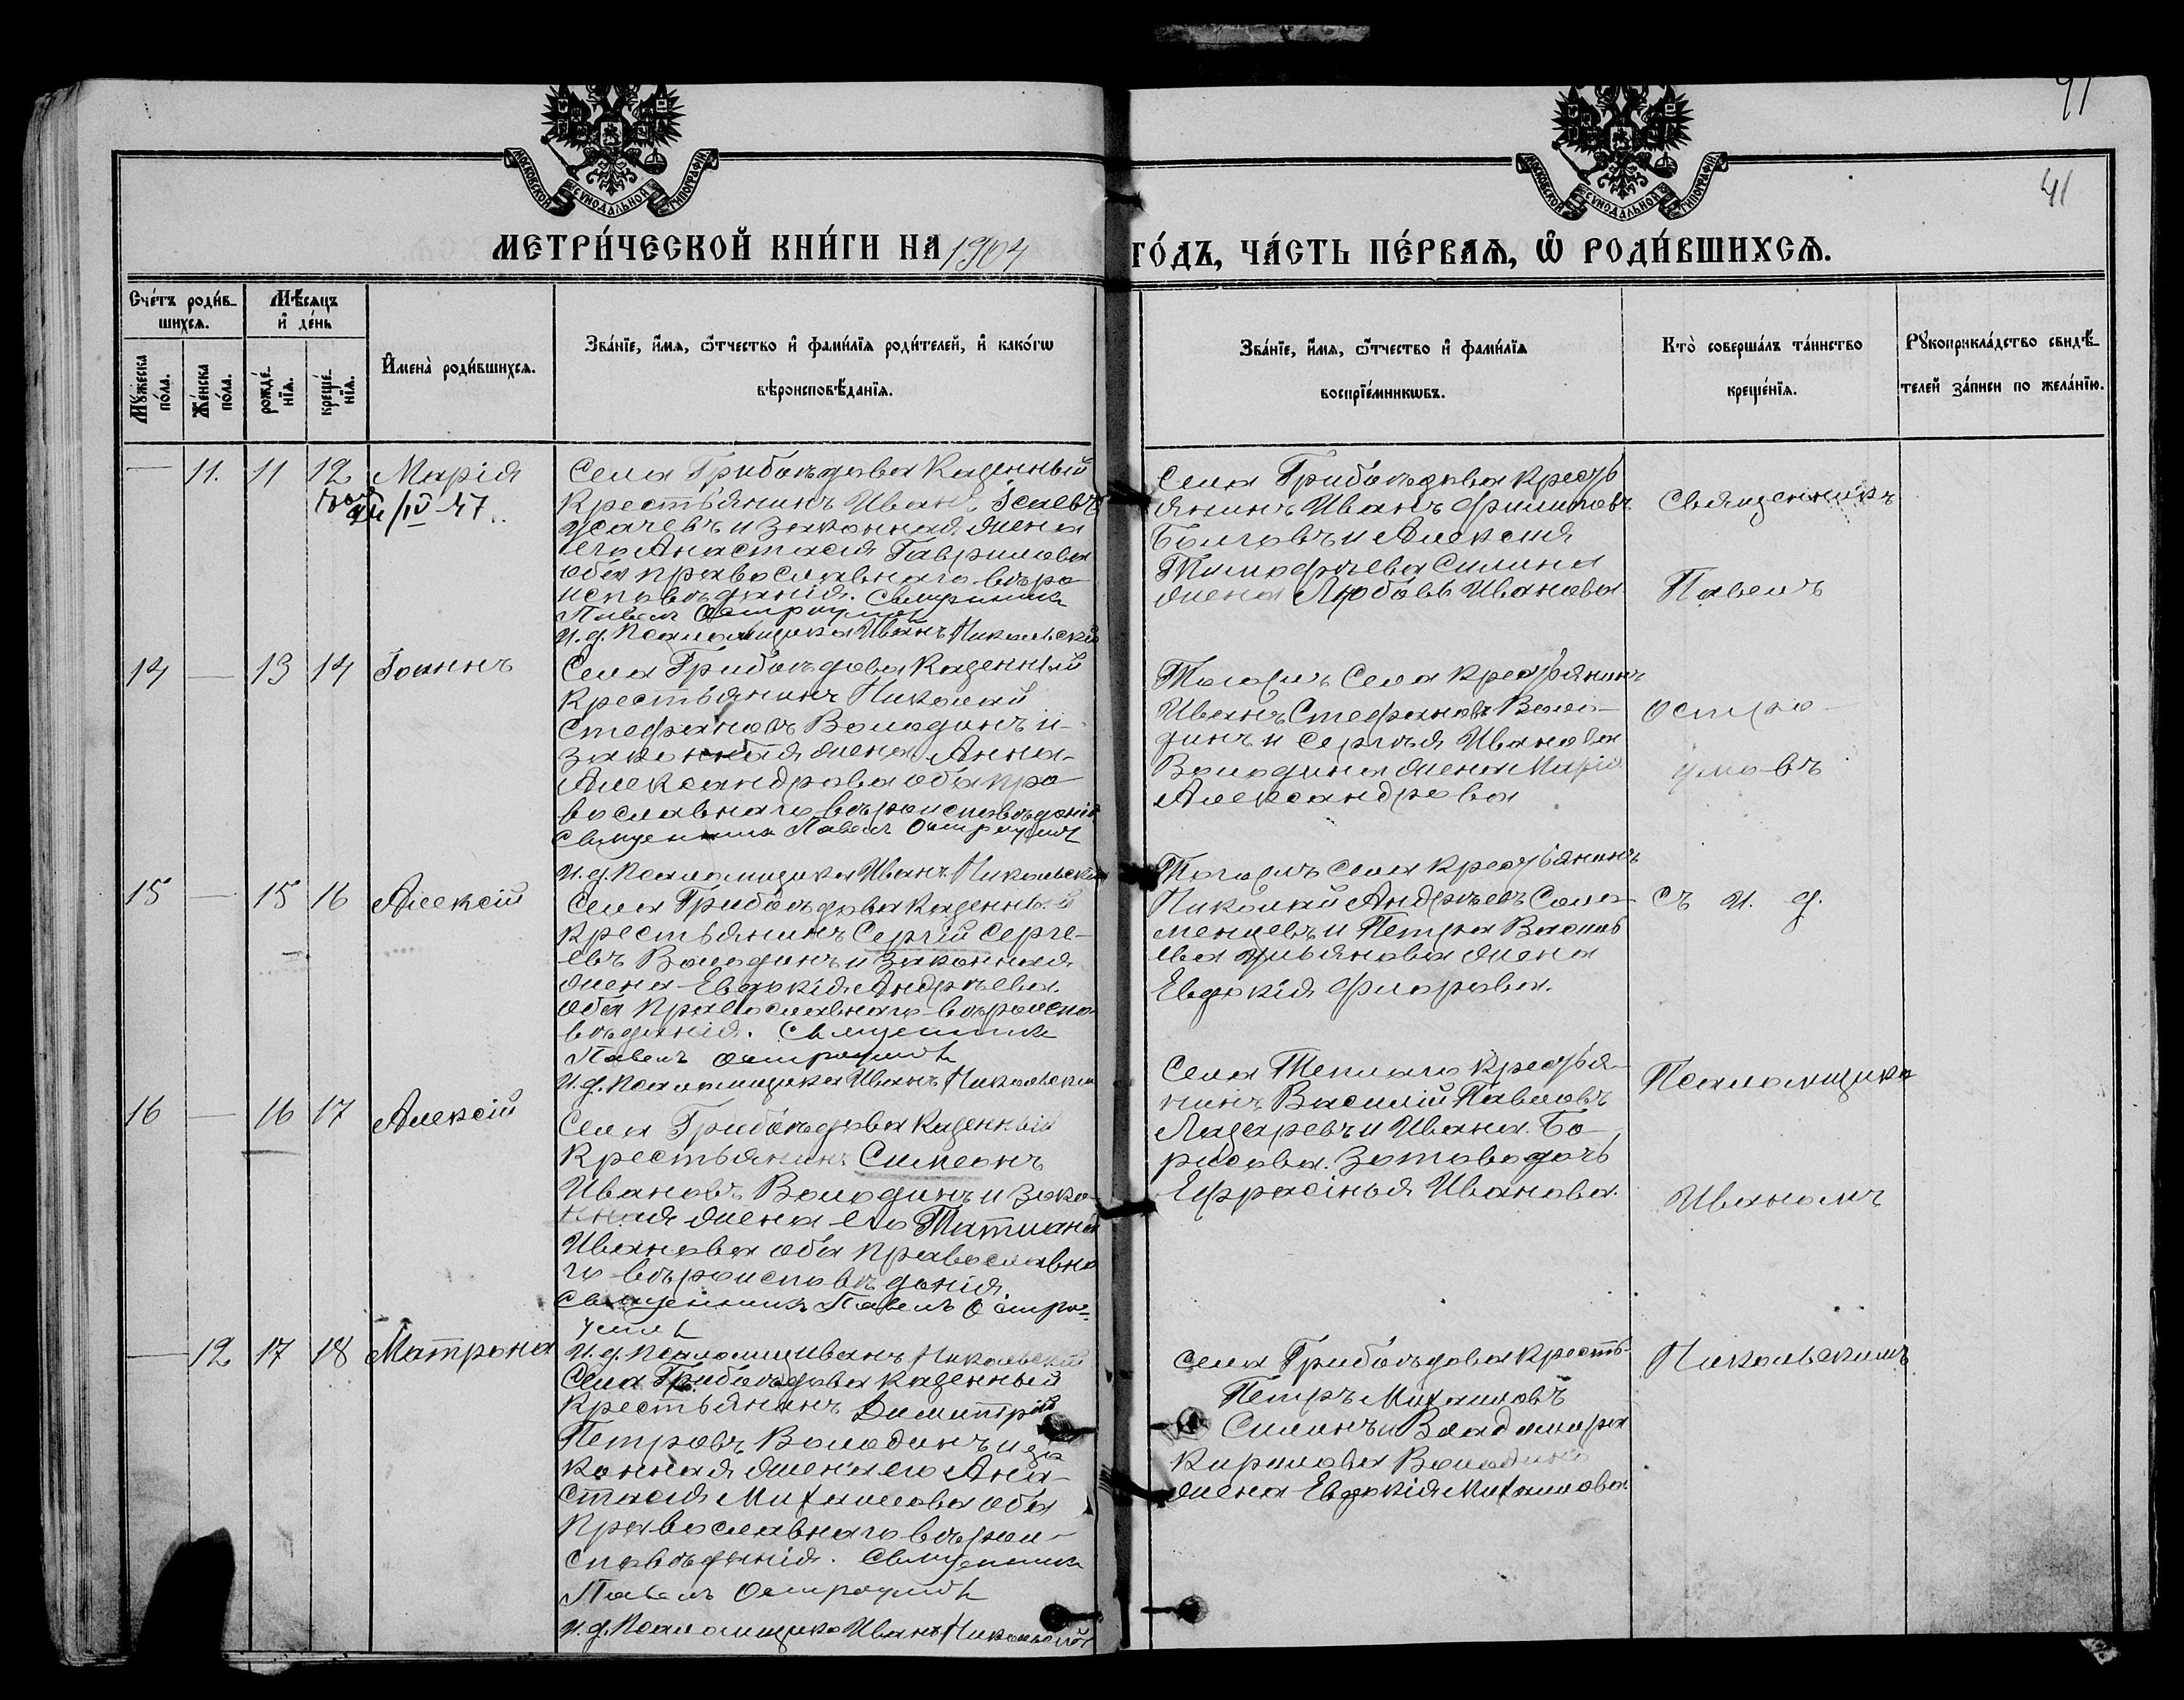 41
41
МОСКОВСКОЙ СѴНОДАЛЬНОЙ ТИПОГРАФІИ.
МОСКОВСКОЙ СѴНОДАЛЬНОЙ ТИПОГРАФІИ.
МЕТРИ́ЧЕСКОЙ КНИ́ГИ НА 1904
ГО́ДЪ, ЧА́СТЬ ПЕ́РВАѦ, Ѿ РОДИ́ВШИХСѦ.
Сче́тъ роди́в-
шихсѧ.
Мꙋ́жеска по́ла.
Же́нска по́ла.
Мѣ́сѧцъ
и҆ де́нь
рожде́-
нїѧ.
креще́-
нїѧ.
И҆мена̀ роди́вшихсѧ.
Зва́нїе, и҆́мѧ, ѻ҆́тчество и҆ фами́лїѧ роди́телей, и҆ како́гѡ
вѣроисповѣ́данїѧ.
Зва́нїе, и҆́мѧ, ѻ҆́тчество и҆ фами́лїѧ
воспрїе́мникѡвъ.
Кто̀ соверша́лъ та́инство
креще́нїѧ.
Рꙋкоприкла́дство свидѣ́-
телей за́писи по жела́нїю.
— 11. 11 12 Марія
/IV-47
Села Грибоѣдова Казенный
Крестьянинъ Иванъ Ісаевъ
Усачевъ и законная жена
его Анастасія Гаврилова
оба православнаго вѣро
исповѣданія. Священникъ
Павелъ Остроумовъ
И.д. Псаломщика Иванъ Никольскій
Села Грибоѣдова Кресть
янинъ Иванъ Филиповъ
Болговъ и Алексія
Тимофѣева Силина
жена Любовь Иванова
Священникъ
Павелъ
14 — 13 14 Іоаннъ
Села Грибоѣдова Казенный
Крестьянинъ Николай
Стефановъ Володинъ и
законная жена Анна
Александрова оба пра
вославнаго вѣроисповѣданія
Священникъ Павелъ Остроумовъ
И.д. Псаломщика Иванъ Никольскій
Тогожъ Села Крестьянинъ
Иванъ Стефановъ Воло-
динъ и Сергѣя Иванова
Володина жена Марія
Александрова
Остро-
умовъ
15 — 15 16 Алексій
Села Грибоѣдова Казенный
Крестьянинъ Сергій Серге-
евъ Володинъ и законная
жена Евдокія Андрѣева
оба Православнаго вѣроиспо
вѣданія. Священникъ
Павелъ Остроумовъ
И.д. Псаломщика Иванъ Никольскій
Тогожъ села Крестьянинъ
Николай Андрѣевъ Соло-
менцевъ и Петра Василь
ева Ульянова жена
Евдокія Флорова.
съ и. д.
16 — 16 17 Алексій
Села Грибоѣдова Казенный
Крестьянинъ Симеонъ
Ивановъ Володинъ и зако-
нная жена его Татиана
Иванова оба православна
го вѣроисповѣданія
Священникъ Павелъ Остро-
умовъ
И.д. Псаломщ Иванъ Никольскій
Села Теплаго Крестья-
нинъ Василій Павловъ
Лазаревъ и Ивана Бо-
рисова Зотова дочь
Ефрасінья Иванова.
Псаломщика
Иваномъ
— 12 17 18 Матрона
Села Грибоѣдова Казенный
Крестьянинъ Димитрій
Петровъ Володинъ и за
конная жена его Ана-
стасія Михаилова оба
Православнаго вѣрои-
сповѣданія. Священникъ
Павелъ Остроумовъ
И.д. Псаломщика Иванъ Никольскій
Села Грибоѣдова Кресть-
Петръ Михаиловъ
Силинъ и Владимира
Кирилова Володина
жена Евдокія Михаилова
Никольскимъ